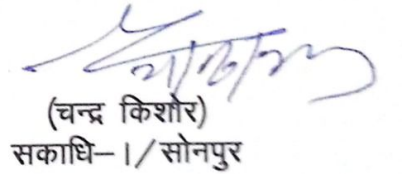 (चन्द्र किशोर)
सकाधि–।/सोनपुर